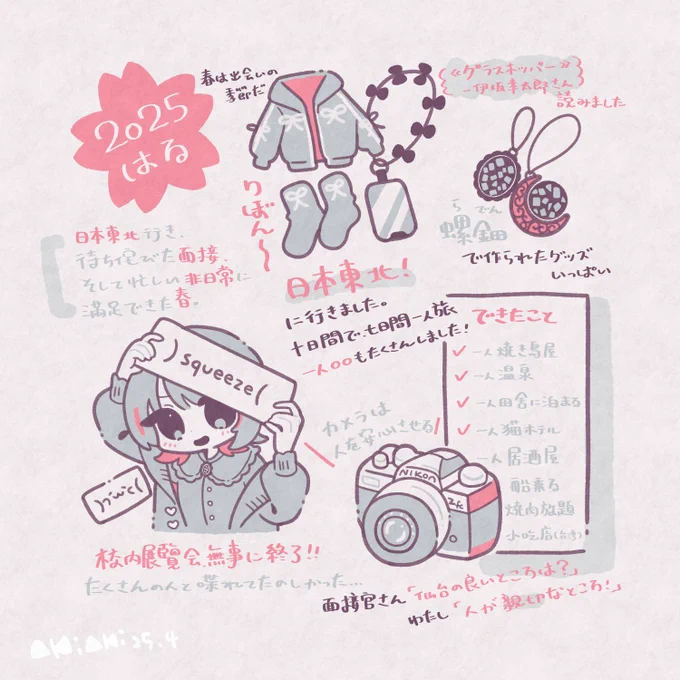 2025
はる
春は出会いの
季節だ
りばん〜
《グラスホッパー》
-伊坂幸太郎さん
読みました
らでん
螺鈿
で作られたグッズ
いっぱい
日本東北行き、
待ち侘びた面接、
そして忙しい非日常に
満足できた春。
日本東北!
に行きました。
十日間で、七日間一人旅
一人〇〇もたくさんしました!
できたこと
✓一人焼き鳥屋
✓一人温泉
✓一人田舎に泊まる
✓一人猫ホテル
一人居酒屋
船乗る
焼肉放題
小吃店(台湾)
squeeze
カメラは
人を安心させる
Nikon
Zfc
校内展覽会、無事に終了!!
たくさんの人と喋れてたのしかった...
面接官さん「仙台の良いところは?」
わたし「人が親切なところ!」
AKiAKi 25.4